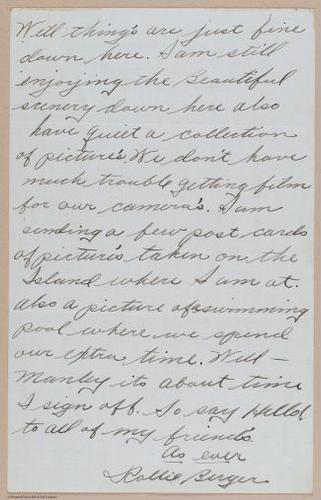 Well thing's are just fine
down here. I am still
enjoying the beautiful
scenery down here also
have quiet a collection
of picture's. We don't have
much trouble getting film
for our camera's. I am
sending a few post cards
of picture's taken on the
Island where I am at.
also a picture of swimming
pool where we spend
our extra time. Well –
Manley its about time
I sign off. So say Hello!
to all of my friend's.
As ever
Rollie Berger